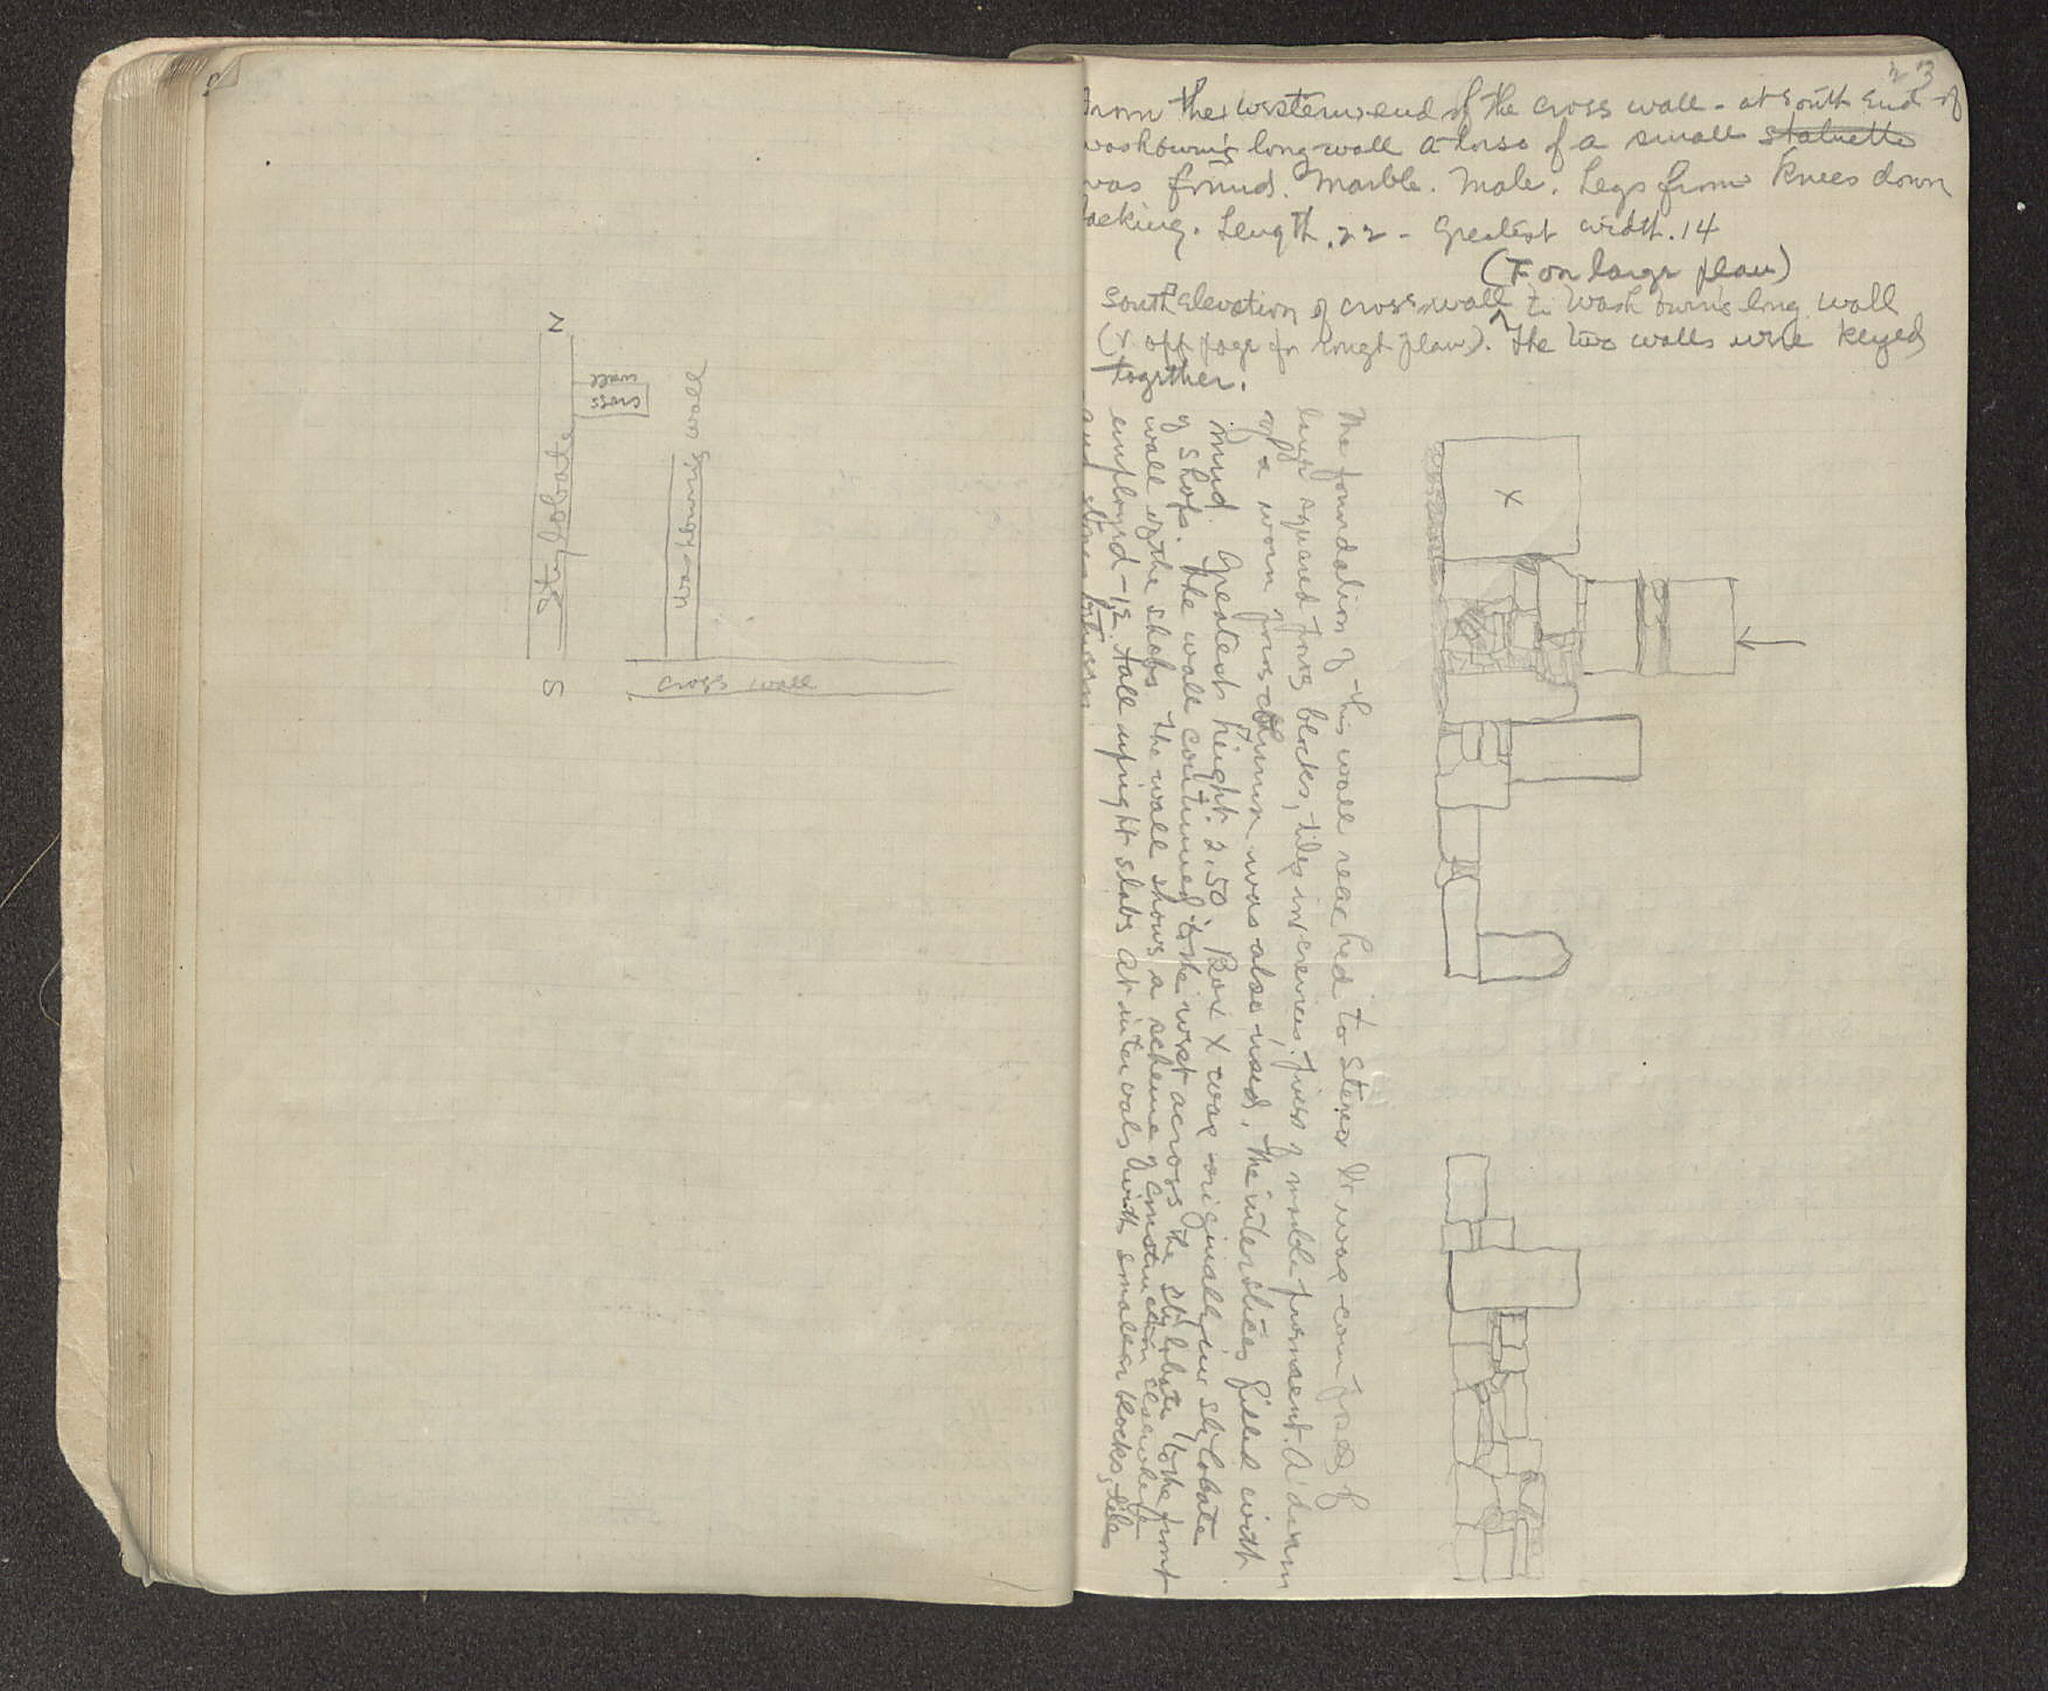 N
cross
wall
Stylobate
Washburn's long wall
S
cross wall
23
From the western end of the cross wall - at south end of
Washburn's long wall a torso of a small statuette
was found. Marble. Male. Legs from knees down
lacking. Length .22 - Greatest width .14
(F on large plan)
South elevation of cross wall to Washburn's long wall
(x off page for plan). The two walls were keyed
together.
The foundation of this wall reached to Stereo It was composed of
large squared poros blocks, tiles in crevices. Pieces of marble present. A drum
of a worn poros column was also used, the interstices filled with
mud. Greatest height 2.50 Box X was originally in stylobate
of shops. The wall continued to the west across the stylobate to the front
wall of the shops. The wall shows a scheme of construction elsewhere
employed - i.e. tall upright slabs at intervals with smaller blocks, tiles
and stones between
X